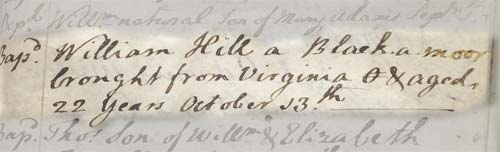 Bapd. Willm natural Son of Mary Adams Septr
Bapd. William Hill a Black. a moor
brought from Virginia & aged.
22 Years October 13th
Bap. Thos. Son of Willm & Elizabeth